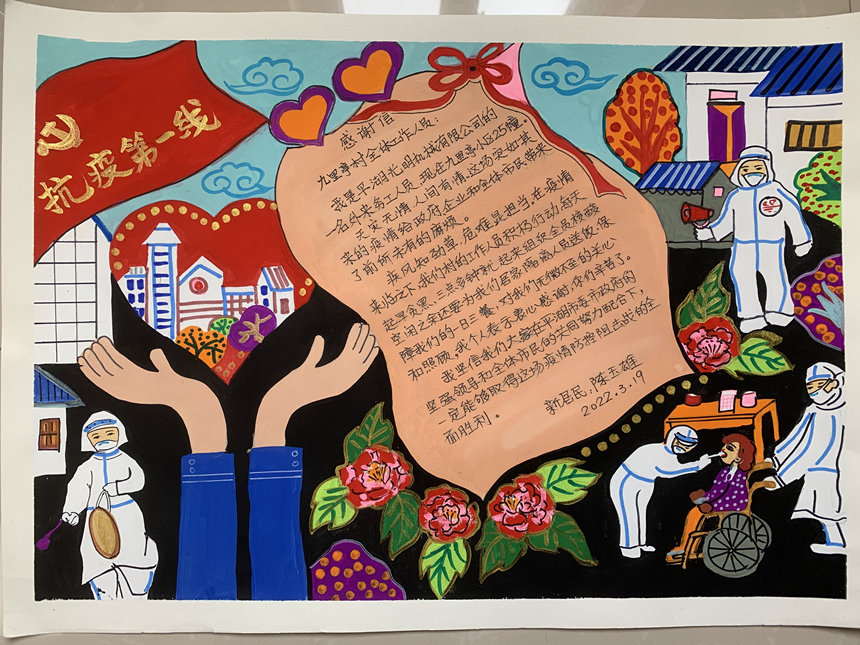 抗疫第一线
感谢信
九里亭村全体工作人员：
我是平湖光明机械有限公司的
一名外来务工人员，现住九里亭小区25幢。
天灾无情人间有情，这场突如其
来的疫情给政府企业和全体市民带来
了前所未有的麻烦。
疾风知劲草，危难显担当，在疫情
来临之下，我们村的工作人员积极行动，每天
起早贪黑，三点多钟就起来组织全员核酸
空闲之余还要为我们居家隔离人员送饭，保
障我们的一日三餐，对我们无微不至的关心
和照顾，我个人表示衷心感谢，你们辛苦了。
我坚信我们大家在平湖市市政府的
坚强领导和全体市民的共同努力配合下，
一定能够取得这场疫情防控阻击战的全
面胜利。
新居民：陈玉雄
2022.3.19